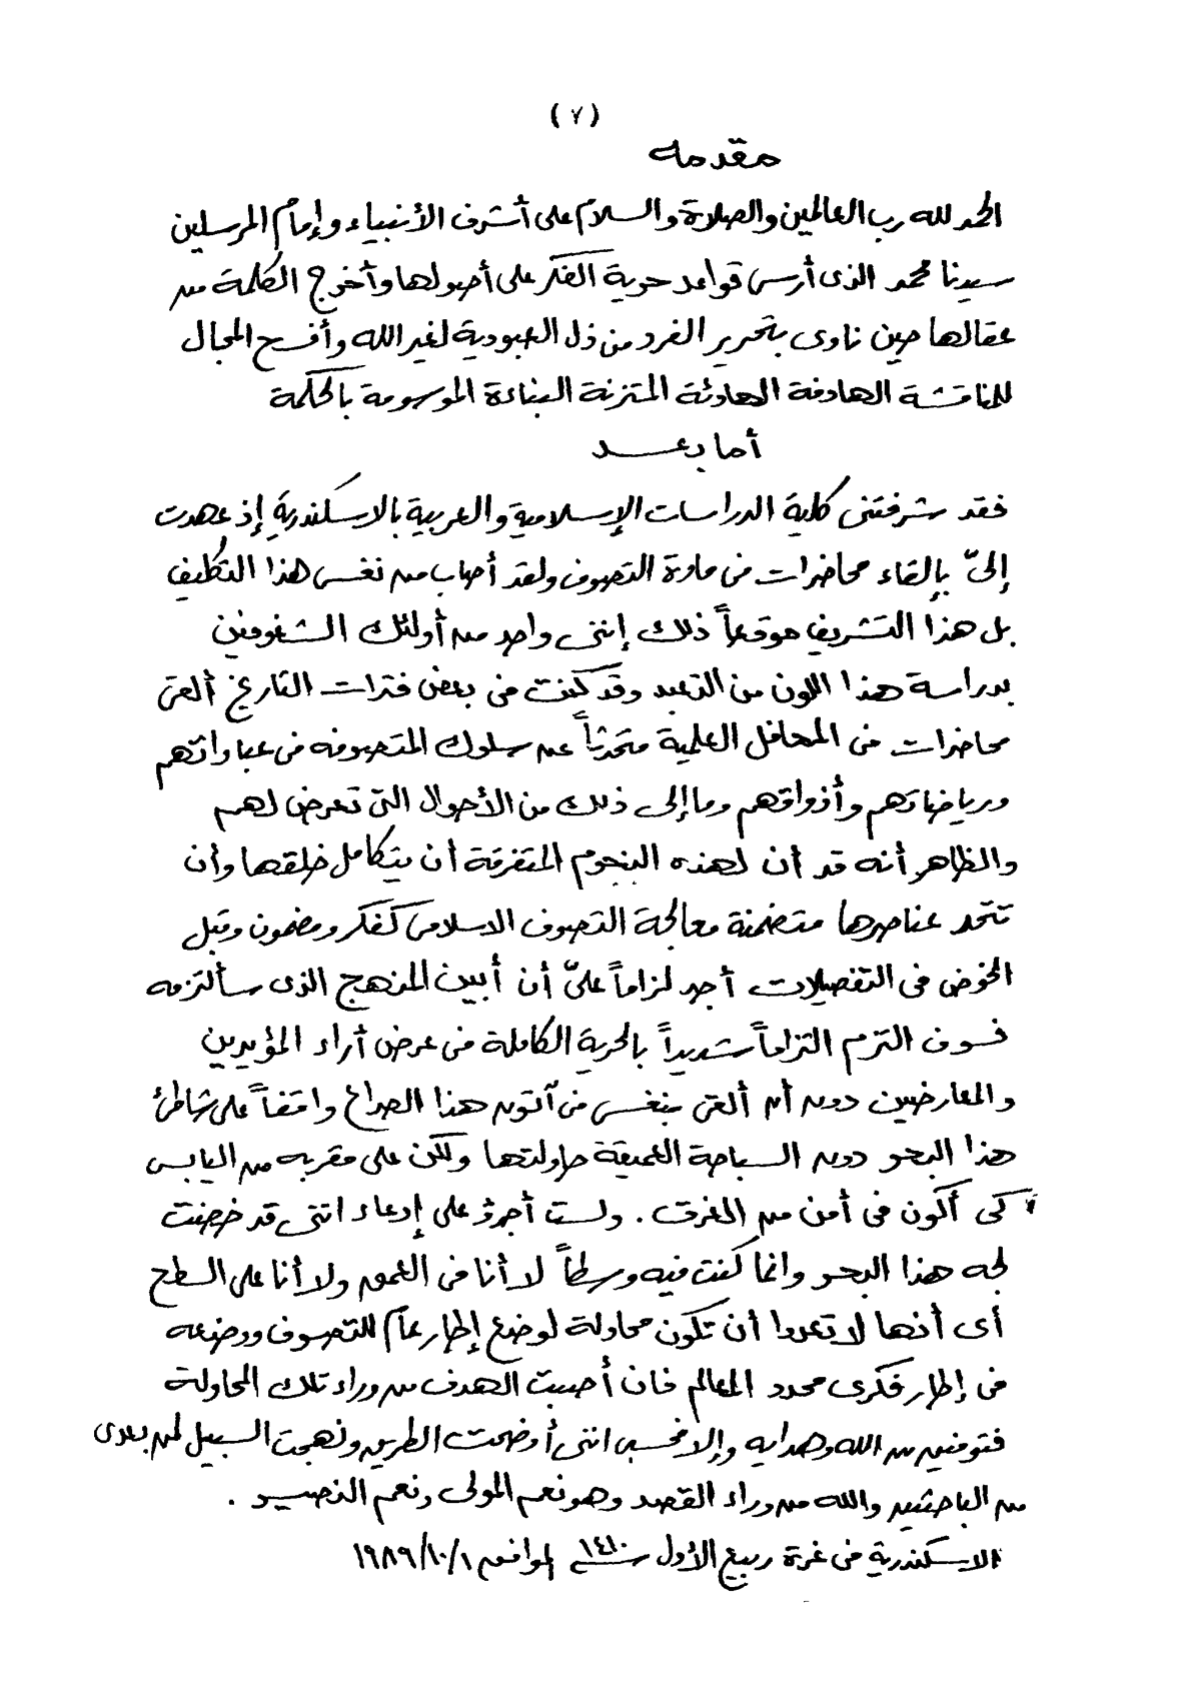 ( ٧ )
مقدمه
الحمد لله رب العالمين والصلاة والسلام على أشرف الأنبياء وإمام المرسلين
سيدنا محمد الذى أرسى قواعد حرية الفكر على أصولها وأخرج الكلمة من
عقالها حين نادى بتحرير الفرد من ذل العبودية لغير الله وأفسح المجال
للمناقشة الهادفة الهادئة المتزنة البناءة الموسومة بالحكمة
أما بعد
فقد شرفتنى كلية الدراسات الإسلامية والعربية بالاسكندرية إذ عهدت
إلىّ بإلقاء محاضرات فى مادة التصوف ولقد أصاب من نفسى هذا التكليف
بل هذا التشريف موقعاً ذلك إننى واحد من أولئك الشغوفين
بدراسة هذا اللون من التعبد وقد كنت فى بعض فترات التاريخ ألقى
محاضرات فى المحافل العلمية متحدثاً عن سلوك المتصوفه فى عباداتهم
ورياضاتهم وأذواقهم وما إلى ذلك من الأحوال التى تعرض لهم
والظاهر أنه قد آن لهذه النجوم المتفرقة أن يتكامل خلقها وأن
تتحد عناصرها متضمنة معالجة التصوف الاسلامى كفكر ومضمون وقبل
الخوض فى التفصيلات أجد لزاماً علىّ أن أبين المنهج الذى سألتزمه
فسوف التزم التزاماً شديداً بالحرية الكاملة فى عرض أراء المؤيدين
والمعارضين دون أن ألقى بنفسى فى آتون هذا الصراع واقفاً على شاطئ
هذا البحر دون السباحة العميقة حاولتها ولكن على مقربه من اليابس
كى أكون فى أمن من الغرق . ولست أجرؤ على إدعاء اننى قد خضت
لجه هذا البحر وانما كنت فيه وسطاً لا أنا فى العمق ولا أنا على السطح
أى أنها لا تعدوا أن تكون محاولة لوضع إطار عام للتصوف ووضعه
فى إطار فكرى محدد المعالم فان أصبت الهدف من وراء تلك المحاولة
فتوفيق من الله وهدايه وإلا فحسبى اننى أوضحت الطريق ونهجت السبيل لمن بعدى
من الباحثين والله من وراء القصد وهو نعم المولى ونعم النصير .
الاسكندرية فى غرة ربيع الأول سنة ١٤١٠ الموافق ١٩٨٩/١٠/١